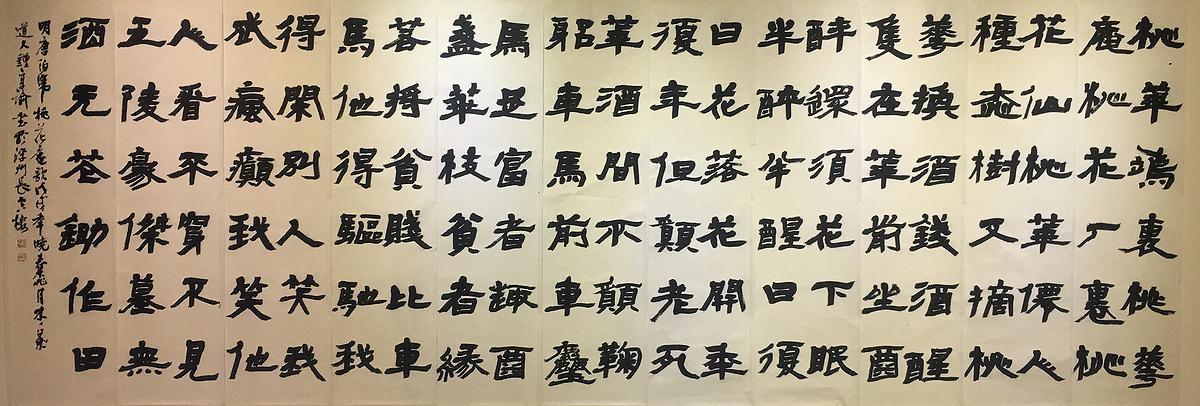 桃華塢裏桃華
庵桃花厂裏桃
花仙桃華僊人
種桃樹又摘桃
華換酒錢酒醒
隻在華前坐酉
醉還須花下眠
半醉半醒日復
日花落花開年
復年但願老死
華酒間不願鞠
躬車馬前車塵
馬足富者趣酉
盞華枝貧者緣
若將貧賤比車
馬他得驅馳我
得閑別人笑我
忒瘋癲我笑他
人看不穿不見
五陵豪傑墓無
酒无花鋤作田
明唐伯虎桃花庵歌戊戌年晚春月
道人書於深圳長雲樓